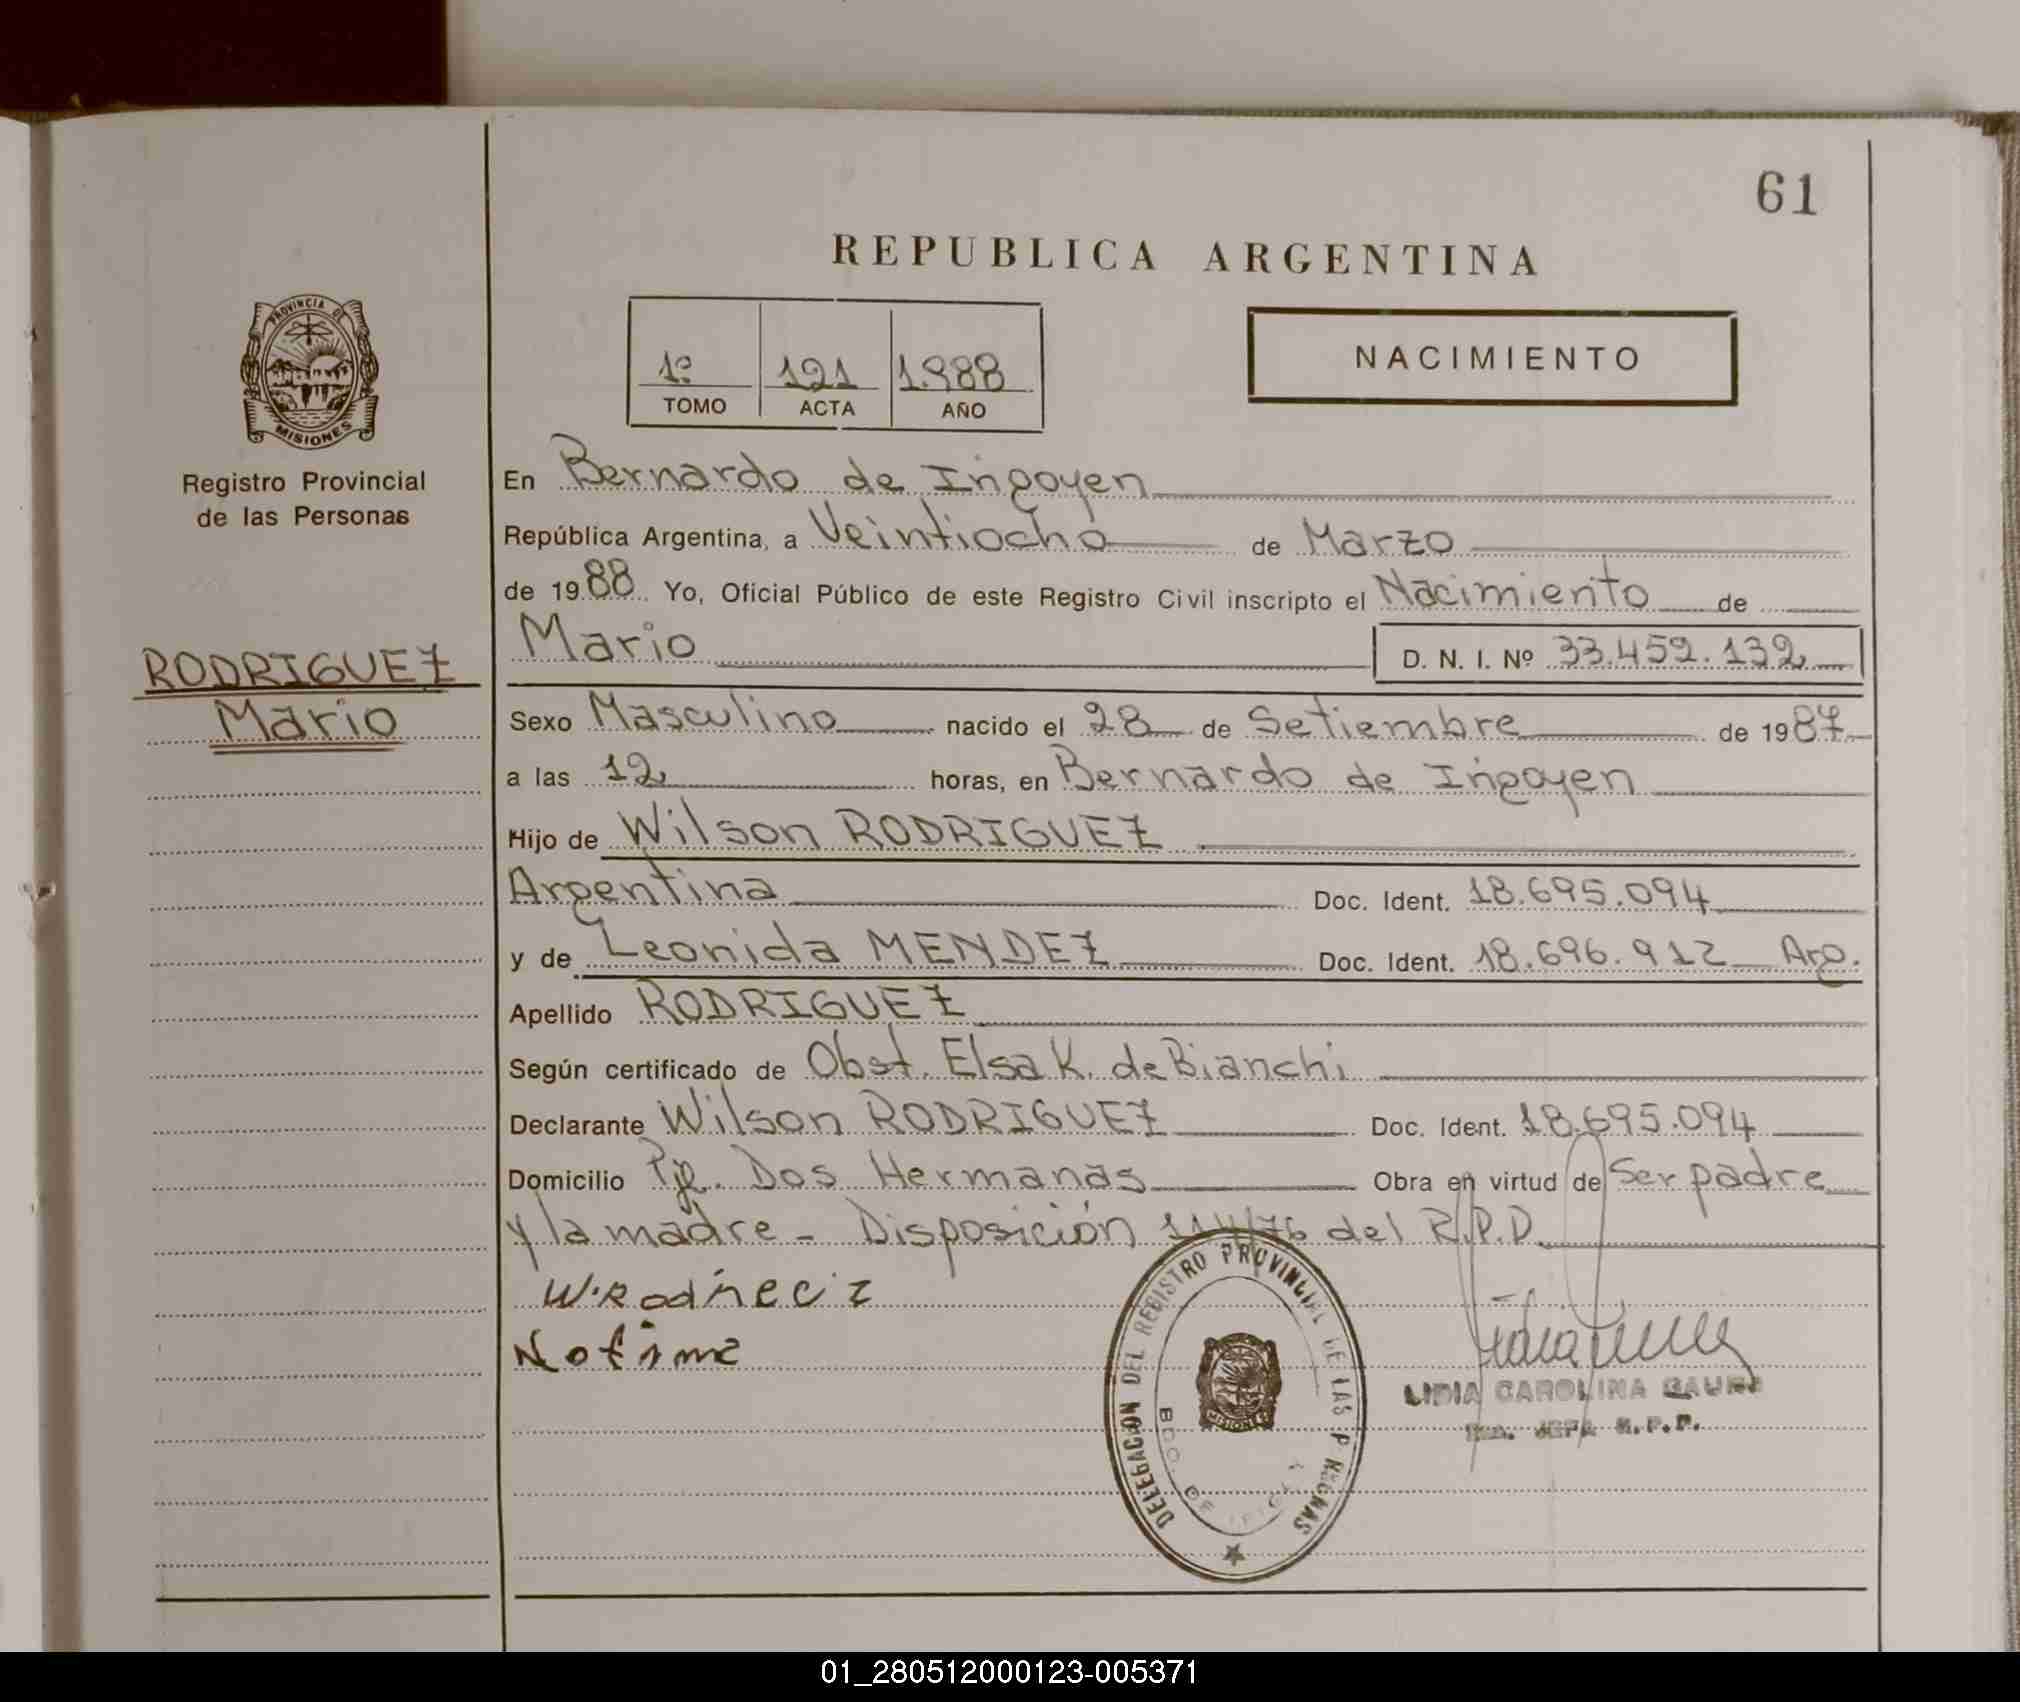 61
REPUBLICA ARGENTINA
1º 121 1.988
TOMO ACTA AÑO
NACIMIENTO
PROVINCIA DE
MISIONES
Registro Provincial
de las Personas
RODRIGUEZ
Mario
En Bernardo de Irigoyen
República Argentina, a Veintiocho de Marzo
de 1988 Yo, Oficial Público de este Registro Civil inscripto el Nacimiento de
Mario D. N. I. Nº 33.452.132
Sexo Masculino nacido el 28 de Setiembre de 1987
a las 12 horas, en Bernardo de Irigoyen
Hijo de Wilson RODRIGUEZ
Argentina Doc. Ident. 18.695.094
y de Leonida MENDEZ Doc. Ident. 18.696.912 Arg.
Apellido RODRIGUEZ
Según certificado de Obst. Elsa K. de Bianchi
Declarante Wilson RODRIGUEZ Doc. Ident. 18.695.094
Domicilio Pje. Dos Hermanas Obra en virtud de Ser padre
y la madre - Disposición /76 del R.P.D.
No firma
DELEGACION DEL REGISTRO PROVINCIAL DE LAS
BDO. DE
MISIONES
LIDIA CAROLINA
JEFA R.P.P.
01_280512000123-005371